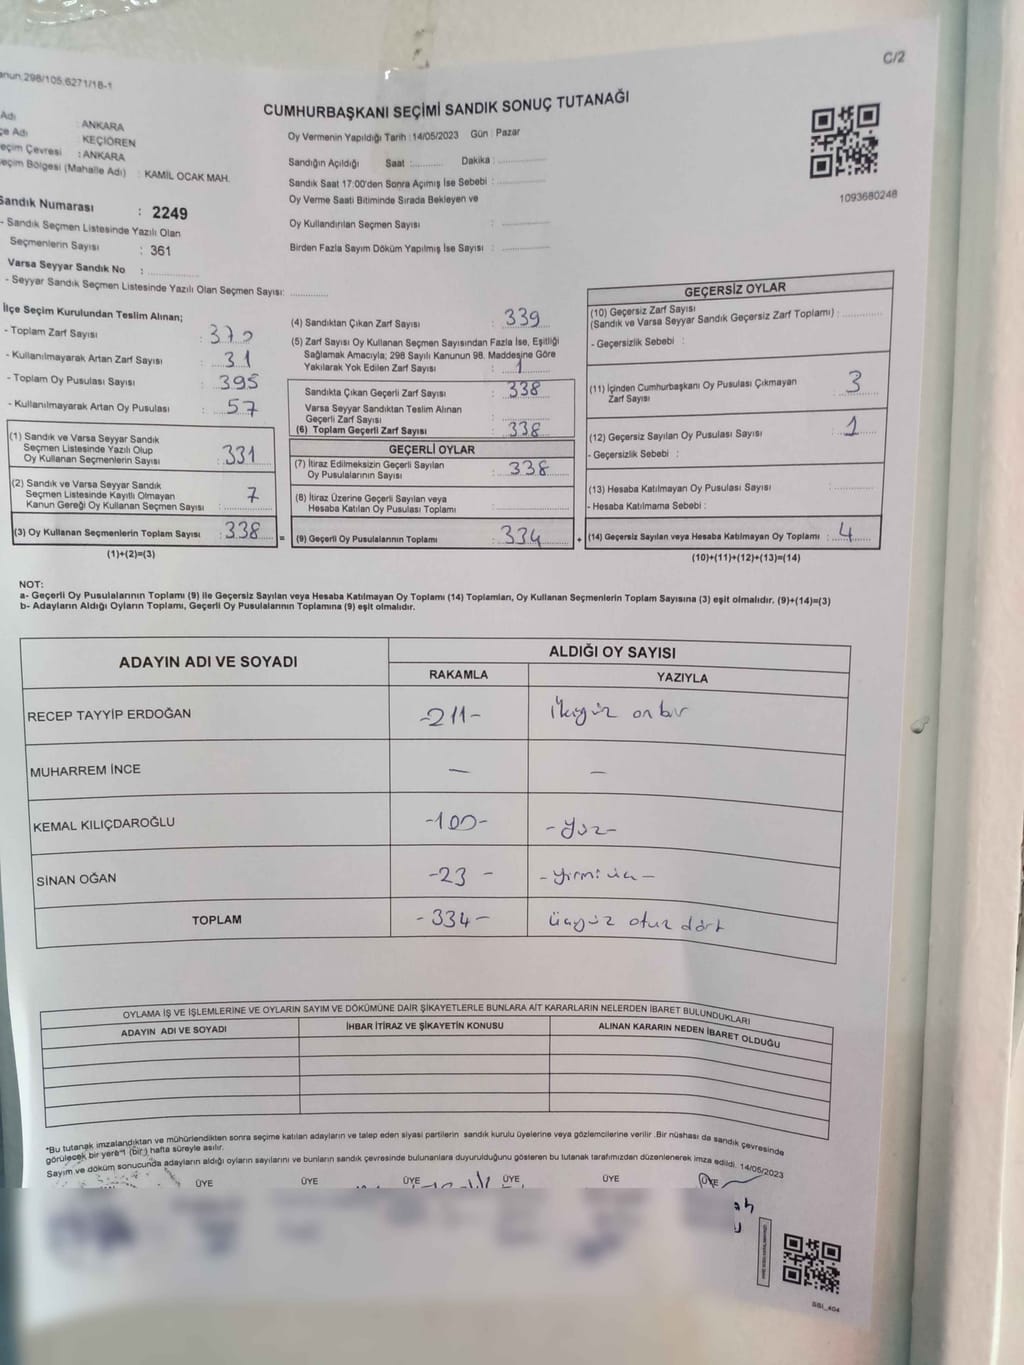 C/2
anun:298/105,6271/18-1
CUMHURBAŞKANI SEÇİMİ SANDIK SONUÇ TUTANAĞI
Adı : ANKARA
çe Adı : KEÇİÖREN
eçim Çevresi : ANKARA
eçim Bölgesi (Mahalle Adı) : KAMİL OCAK MAH.
Sandık Numarası : 2249
- Sandık Seçmen Listesinde Yazılı Olan
Seçmenlerin Sayısı : 361
Varsa Seyyar Sandık No : ............
- Seyyar Sandık Seçmen Listesinde Yazılı Olan Seçmen Sayısı: ............
Oy Vermenin Yapıldığı Tarih : 14/05/2023 Gün : Pazar
Sandığın Açıldığı Saat :........... Dakika : ................
Sandık Saat 17:00'den Sonra Açımış İse Sebebi : ................
Oy Verme Saati Bitiminde Sırada Bekleyen ve
Oy Kullandırılan Seçmen Sayısı : ................
Birden Fazla Sayım Döküm Yapılmış İse Sayısı : ................
1093680248
İlçe Seçim Kurulundan Teslim Alınan;
- Toplam Zarf Sayısı : 370
- Kullanılmayarak Artan Zarf Sayısı : 31
- Toplam Oy Pusulası Sayısı : 395
- Kullanılmayarak Artan Oy Pusulası : 57
(1) Sandık ve Varsa Seyyar Sandık
Seçmen Listesinde Yazılı Olup
Oy Kullanan Seçmenlerin Sayısı : 331
(2) Sandık ve Varsa Seyyar Sandık
Seçmen Listesinde Kayıtlı Olmayan
Kanun Gereği Oy Kullanan Seçmen Sayısı : 7
(3) Oy Kullanan Seçmenlerin Toplam Sayısı : 338 =
(1)+(2)=(3)
(4) Sandıktan Çıkan Zarf Sayısı : 339
(5) Zarf Sayısı Oy Kullanan Seçmen Sayısından Fazla İse, Eşitliği
Sağlamak Amacıyla; 298 Sayılı Kanunun 98. Maddesine Göre
Yakılarak Yok Edilen Zarf Sayısı : 1
Sandıkta Çıkan Geçerli Zarf Sayısı : 338
Varsa Seyyar Sandıktan Teslim Alınan
Geçerli Zarf Sayısı : ............
(6) Toplam Geçerli Zarf Sayısı : 338
GEÇERLİ OYLAR
(7) İtiraz Edilmeksizin Geçerli Sayılan
Oy Pusulalarının Sayısı : 338
(8) İtiraz Üzerine Geçerli Sayılan veya
Hesaba Katılan Oy Pusulası Toplamı : ............
(9) Geçerli Oy Pusulalarının Toplamı : 334 +
GEÇERSİZ OYLAR
(10) Geçersiz Zarf Sayısı
(Sandık ve Varsa Seyyar Sandık Geçersiz Zarf Toplamı) : ............
- Geçersizlik Sebebi :
(11) İçinden Cumhurbaşkanı Oy Pusulası Çıkmayan
Zarf Sayısı : 3
(12) Geçersiz Sayılan Oy Pusulası Sayısı : 1
- Geçersizlik Sebebi :
(13) Hesaba Katılmayan Oy Pusulası Sayısı : ............
- Hesaba Katılmama Sebebi :
(14) Geçersiz Sayılan veya Hesaba Katılmayan Oy Toplamı : 4
(10)+(11)+(12)+(13)=(14)
NOT:
a- Geçerli Oy Pusulalarının Toplamı (9) ile Geçersiz Sayılan veya Hesaba Katılmayan Oy Toplamı (14) Toplamları, Oy Kullanan Seçmenlerin Toplam Sayısına (3) eşit olmalıdır. (9)+(14)=(3)
b- Adayların Aldığı Oyların Toplamı, Geçerli Oy Pusulalarının Toplamına (9) eşit olmalıdır.
ADAYIN ADI VE SOYADI ALDIĞI OY SAYISI
RAKAMLA YAZIYLA
RECEP TAYYİP ERDOĞAN -211- ikiyüz onbir
MUHARREM İNCE — —
KEMAL KILIÇDAROĞLU -100- -yüz-
SİNAN OĞAN -23 - -yirmi üç-
TOPLAM -334- üçyüz otuz dört
OYLAMA İŞ VE İŞLEMLERİNE VE OYLARIN SAYIM VE DÖKÜMÜNE DAİR ŞİKAYETLERLE BUNLARA AİT KARARLARIN NELERDEN İBARET BULUNDUKLARI
ADAYIN ADI VE SOYADI İHBAR İTİRAZ VE ŞİKAYETİN KONUSU ALINAN KARARIN NEDEN İBARET OLDUĞU
*Bu tutanak imzalandıktan ve mühürlendikten sonra seçime katılan adayların ve talep eden siyasi partilerin sandık kurulu üyelerine veya gözlemcilerine verilir .Bir nüshası da sandık çevresinde
görülecek bir yere 1 (bir) hafta süreyle asılır.
Sayım ve döküm sonucunda adayların aldığı oyların sayılarını ve bunların sandık çevresinde bulunanlara duyurulduğunu gösteren bu tutanak tarafımızdan düzenlenerek imza edildi. 14/05/2023
ÜYE ÜYE ÜYE ÜYE ÜYE ÜYE
SSI_404